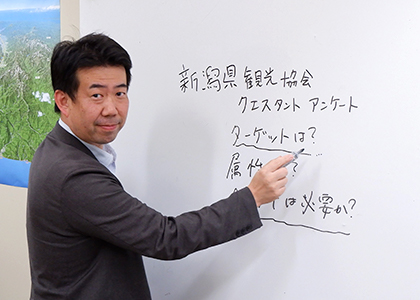 新潟県観光協会
クエスタント アンケート
ターゲットは?
属性 ?
は必要か?